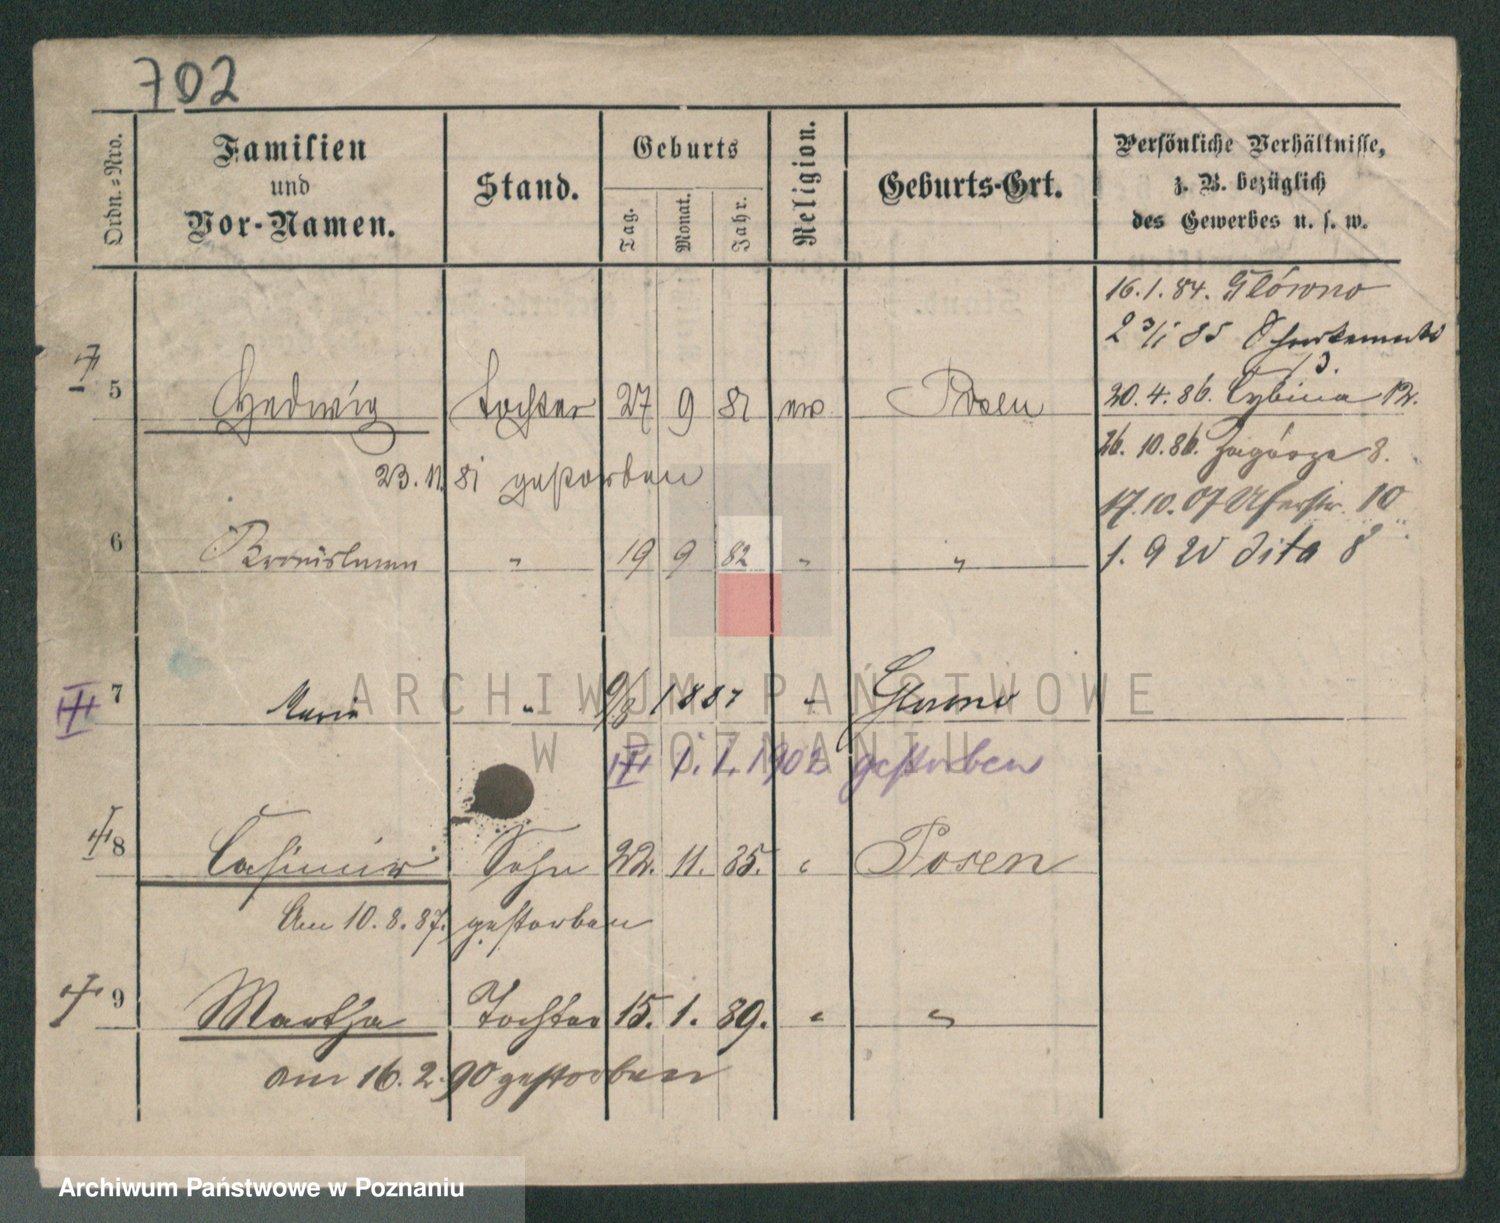 702
Ordn.-Nro.
Familien
und
Vor-Namen.
Stand.
Geburts
Tag.
Monat.
Jahr.
Religion.
Geburts-Ort.
Persönliche Verhältnisse,
z. B. bezüglich
des Gewerbes u. s. w.
16.1.84. Glówno
2 3/1 85
20.4.86. Cybina 12.
26.10.86. Zagórze 8.
17.10.07 Uferstr. 10
1. 9 20 dito 8
5 Hedwig Tochter 27 9 81 Posen
23.11.81 gestorben
6 " 19 9 82 " "
7 Marie " 9/8 1887 " Glowno
1.1.1902 gestorben
8 Casimir Sohn 22. 11. 85. " Posen
Am 10.8.87. gestorben
9 Martha Tochter 15. 1. 89. " "
am 16.2.90 gestorben
ARCHIWUM PAŃSTWOWE
W POZNANIU
Archiwum Państwowe w Poznaniu